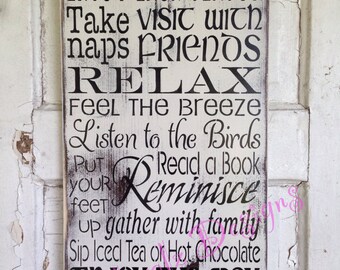 Take VISIT WITH
naps FRIENDS
RELAX
FEEL THE BREEZE
Listen to the Birds
Put Read a Book
your Reminisce
feet
up gather with family
Sip Iced Tea or Hot Chocolate